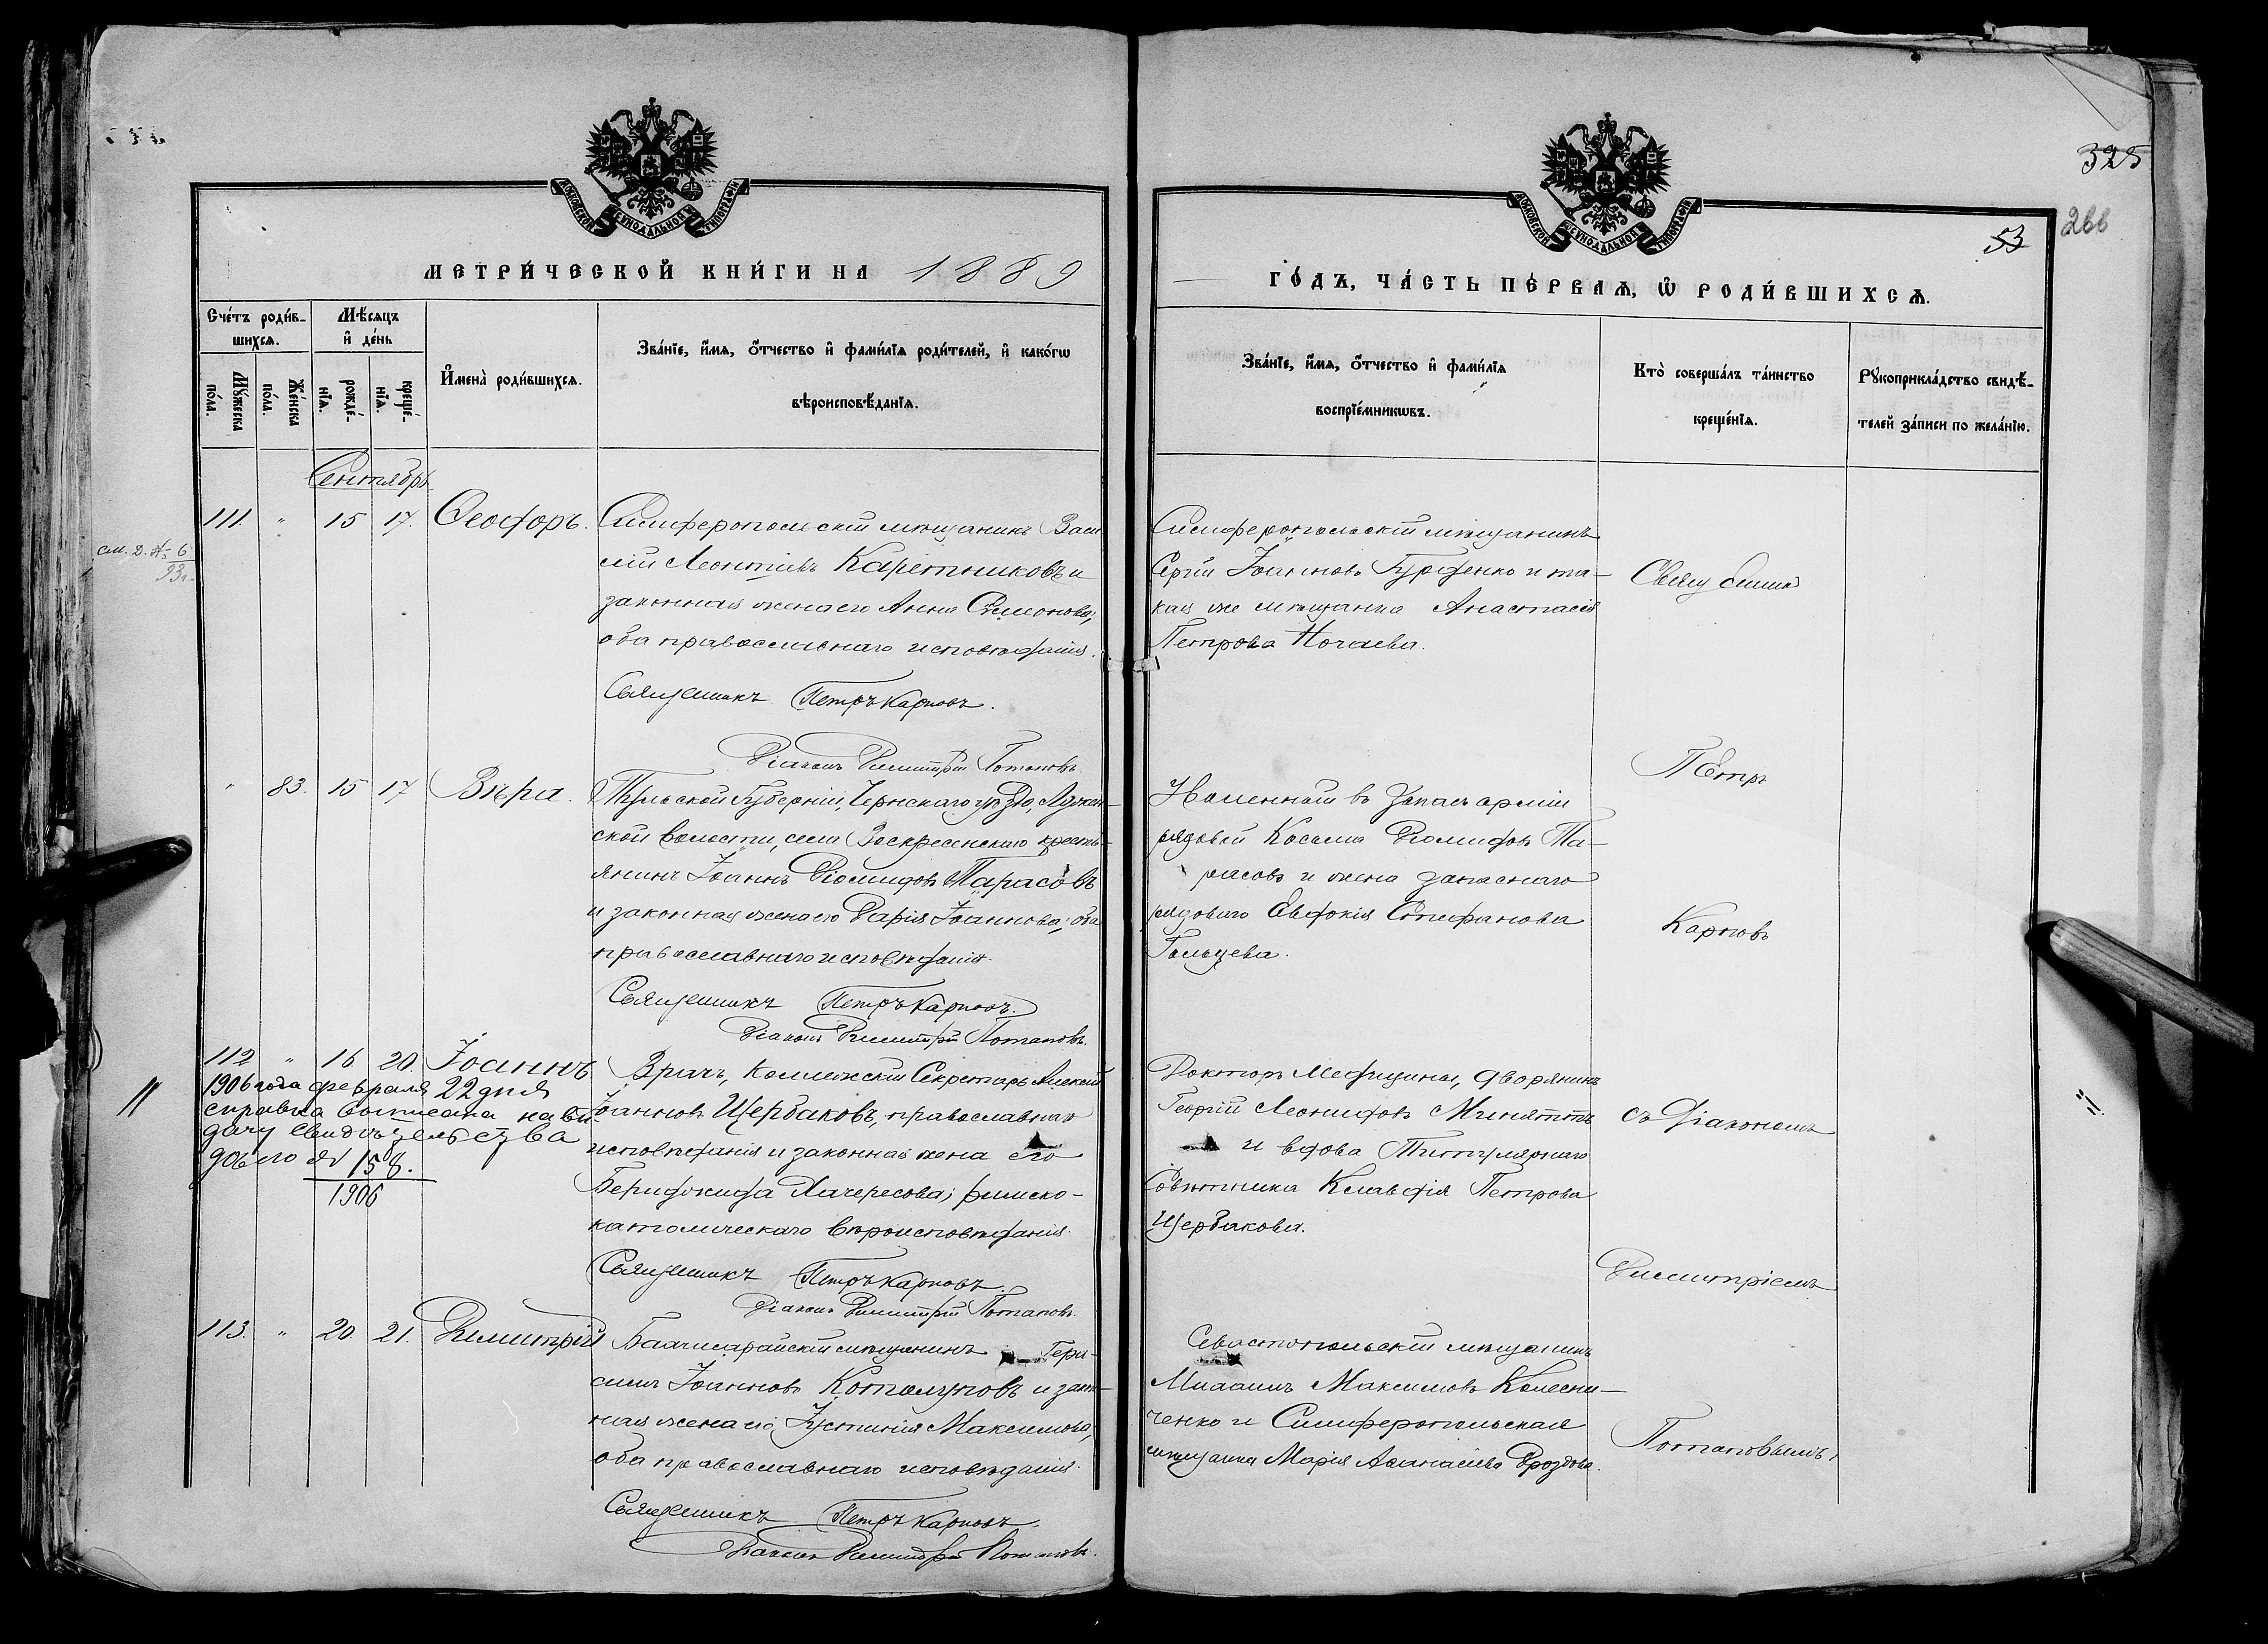 325
266
53
МОСКОВСКОЙ СѴНОДАЛЬНОЙ ТИПОГРАФІИ
МОСКОВСКОЙ СѴНОДАЛЬНОЙ ТИПОГРАФІИ
МЕТРИ́ЧЕСКОЙ КНИ́ГИ НА 1889
ГО́ДЪ, ЧА́СТЬ ПЕ́РВАЯ, Ѡ РОДИ́ВШИХСЯ.
Сче́тъ роди́в-
шихся.
Мѣ́сяцъ
и҆ де́нь
Мꙋ́жеска по́ла.
Же́нска по́ла.
рожде́-
нїя.
креще́-
нїя.
И҆мена̀ роди́вшихся.
Зва́нїе, и҆́мя, ѻ҆́тчество и҆ фами́лїя роди́телей, и҆ како́гѡ
вѣроисповѣ́данїя.
Зва́нїе, и҆́мя, ѻ҆́тчество и҆ фами́лїя
воспрїе́мникѡвъ.
Кто̀ соверша́лъ та́инство
креще́нїя.
Рꙋкоприкла́дство свидѣ́-
телей за́писи по жела́нїю.
Сентябрь
111. " 15 17. Ѳеодоръ.
Симферопольскій мѣщанинъ Васи
лій Леонтіевъ Каретниковъ и
законная жена его Анна Симонова,
оба православнаго исповѣданія.
Священникъ Петръ Карповъ.
Діаконъ Димитрій Потаповъ
см. Д. № 6
93 г.
Симферопольскій мѣщанинъ
Сергій Іоанновъ Гуртенко и та-
кая же мѣщанка Анастасія
Петрова Ногаева.
Священникъ
" 83. 15 17 Вѣра.
Тульской Губерніи, Чернскаго уѣзда,
ской волости, села Воскресенскаго кресть-
янинъ Іоаннъ Діомидовъ Тарасовъ
и законная жена его Дарія Іоаннова, оба
православнаго исповѣданія.
Священникъ Петръ Карповъ.
Діаконъ Димитрій Потаповъ.
въ запасъ арміи
рядовой Косьма Діомидовъ Та-
расовъ и жена запаснаго
рядоваго Евдокія Стефанова
Гольцева.
Петръ
Карповъ
112 " 16 20. Іоаннъ
1906 года февраля 22 дня
справка выписана на вы-
дачу свидѣтельства
дѣло № 158.
1906
Врачъ, Коллежскій Секретарь Алексій
Іоанновъ Щербаковъ, православнаго
исповѣданія и законная жена его
римско-
католическаго вѣроисповѣданія.
Священникъ Петръ Карповъ.
Діаконъ Димитрій Потаповъ.
Докторъ Медицины, дворянинъ
Георгій Леонидовъ Минятъ
и вдова Титулярнаго
Совѣтника Клавдія Петрова
Щербакова.
съ Діакономъ
Димитріемъ
113. " 20 21. Димитрій
Бахчисарайскій мѣщанинъ Гера-
симъ Іоанновъ Котолуповъ и закон-
ная жена его Іустинія Максимова,
оба православнаго исповѣданія.
Священникъ Петръ Карповъ.
Діаконъ Димитрій Потаповъ.
Севастопольскій мѣщанинъ
Михаилъ Максимовъ Колесни-
ченко и Симферопольская
мѣщанка Марія Аѳанасіева Дроздова.
Потаповымъ